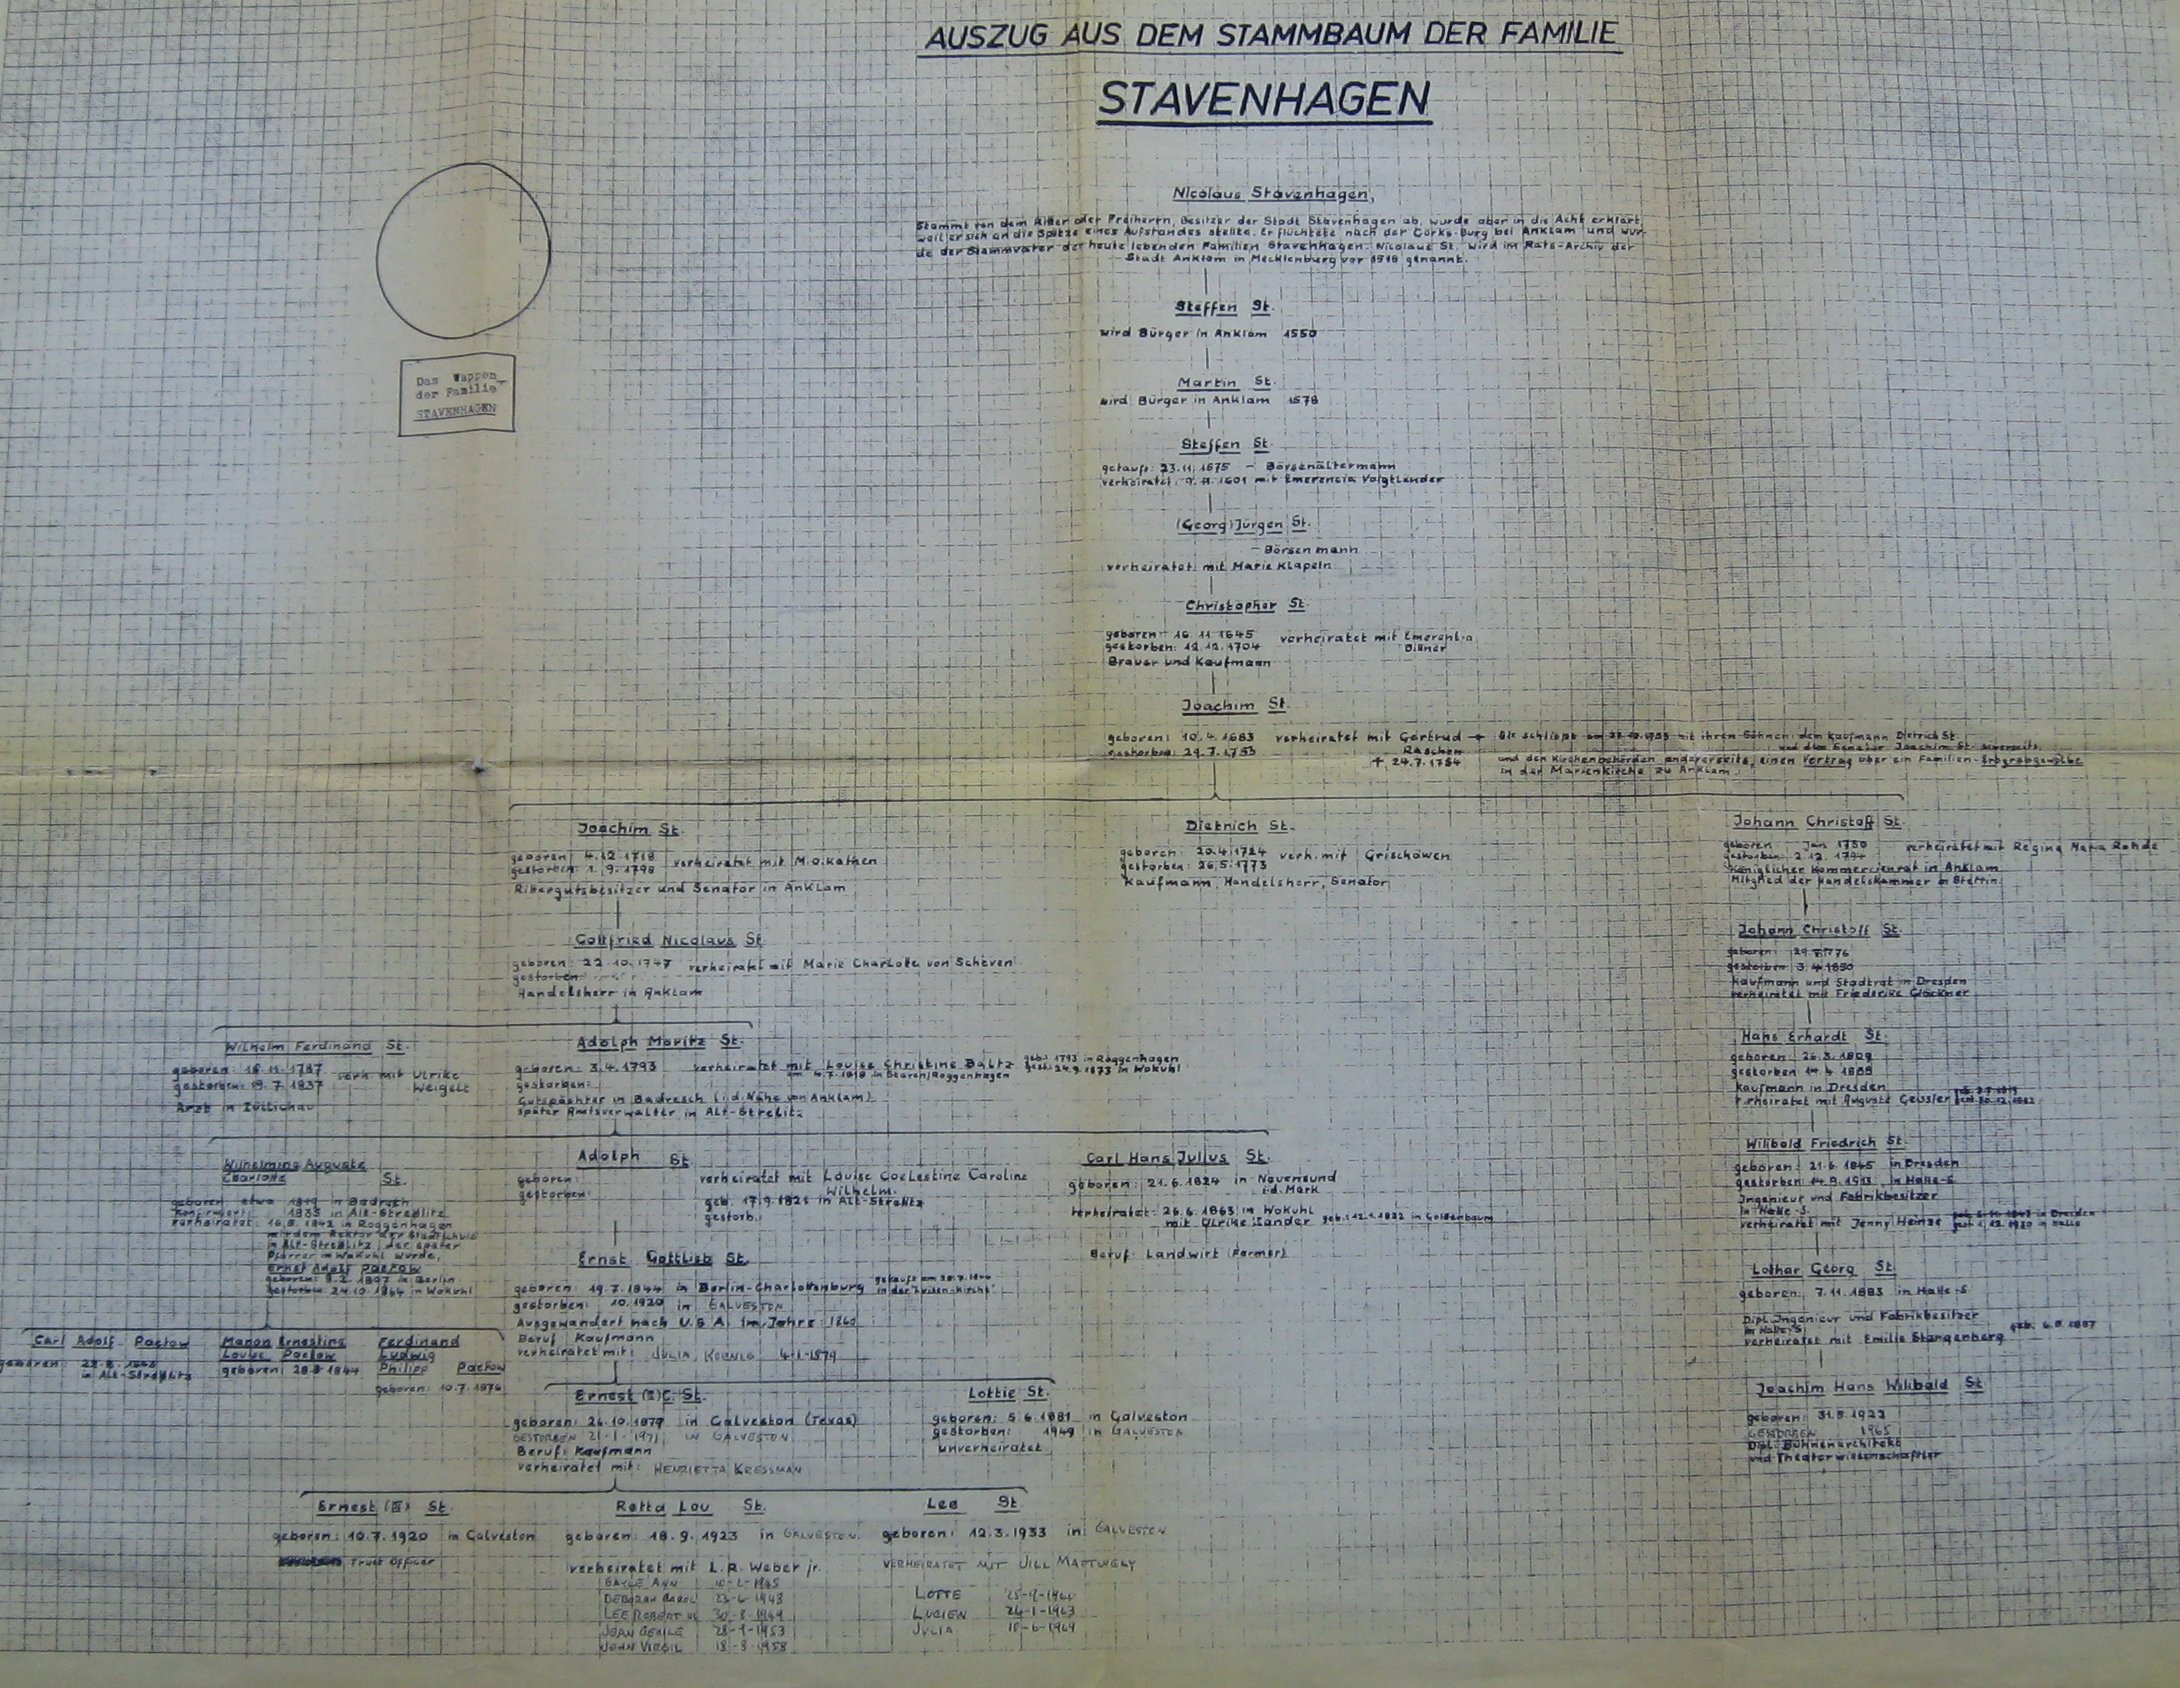 AUSZUG AUS DEM STAMMBAUM DER FAMILIE
STAVENHAGEN
Das Wappen
der Familie
STAVENHAGEN
Nicolaus Stavenhagen,
Stammt von dem Ritter oder Freiherrn, Besitzer der Stadt Stavenhagen ab, wurde aber in die Acht erklärt,
weil er sich an die Spitze eines Aufstandes stellte. Er flüchtete nach der Gorks-Burg bei Anklam und wur-
de der Stammvater der heute lebenden Familien Stavenhagen. Nicolaus St. wird im Rats-Archiv der
Stadt Anklam in Mecklenburg vor 1518 genannt.
Steffen St.
wird Bürger in Anklam 1550
Martin St.
wird Bürger in Anklam 1578
Steffen St.
getauft: 23.11.1575 - Börsenältermann
verheiratet: 9. 1601 mit Emerencia Voigtländer
(Georg) Jürgen St.
- Börsenmann
verheiratet mit Marie Klapeln
Christopher St.
geboren: 16.11.1645 verheiratet mit Emerentia
gestorben: 12.12.1704
Brauer und Kaufmann
Joachim St.
geboren: 10.4.1683 verheiratet mit Gertrud
gestorben: 29.7.1753 Raschen
† 24.7.1754
Sie schließt am 1755 mit ihren Söhnen, dem Kaufmann Dietrich St.
und dem Senator Joachim St. einerseits,
und den Kirchenbehörden andererseits, einen Vertrag über ein Familien-Erbgrabgewölbe
in der Marienkirche zu Anklam.
Joachim St.
geboren: 4.12.1718 verheiratet mit M.O. Kathen
gestorben: 1.9.1798
Rittergutsbesitzer und Senator in Anklam
Dietrich St.
geboren: 20.4.1724 verh. mit Grischowen
gestorben: 26.5.1773
Kaufmann, Handelsherr, Senator
Johann Christoff St.
geboren Jan 1730 verheiratet mit Regina Maria Rohde
gestorben: 2.12. 1794
Königlicher Kommerzienrat in Anklam
Mitglied der Handelskammer in Stettin
Gottfried Nicolaus St.
geboren: 22.10.1747 verheiratet mit Marie Charlotte von Scheven
gestorben:
Handelsherr in Anklam
Johann Christoff St.
geboren: 1776
gestorben 3.4.1850
Kaufmann und Stadtrat in Dresden
verheiratet mit Friederike Glöckner
Wilhelm Ferdinand St.
geboren: 18.11.1787 verh. mit Ulrike
gestorben: 19.7.1837 Weigelt
Arzt in Züllichau
Adolph Moritz St.
geboren: 3.4.1793 verheiratet mit Louise Christine Baltz geb.: 1793 in Roggenhagen
gest.: 24.9.1873 in Wokuhl
gestorben:
Gutspächter in Badresch (i.d. Nähe von Anklam)
später Amtsverwalter in Alt-Strelitz
Hans Erhardt St.
geboren: 26.3.1809
gestorben 14.4.1888
Kaufmann in Dresden
verheiratet mit Auguste Geissler
Wilhelmine Auguste
Charlotte St.
geboren: etwa 1819 in Badresch
konfirmiert: 1835 in Alt-Strelitz
verheiratet: 16.5.1842 in Roggenhagen
mit dem Rektor der Stadtschule
in Alt-Strelitz, der später
Pfarrer in Wokuhl wurde,
Ernst Adolf Pactow
geboren: 9.2.1807 in Berlin
gestorben 24.10.1864 in Wokuhl
Adolph St.
geboren: verheiratet mit Louise Coelestine Caroline
gestorben: Wilhelm.
geb. 17.9.1821 in Alt-Strelitz
gestorb.:
Carl Hans Julius St.
geboren: 21.6.1824 in Nauensund
i.d. Mark
verheiratet: 26.6.1863 in Wokuhl
mit Ulrike Sander geb.: 12.1.1832 in Goldenbaum
Beruf: Landwirt (Farmer)
Wilibald Friedrich St.
geboren: 21.6.1845 in Dresden
gestorben 14.9.1913 in Halle-S.
Ingenieur und Fabrikbesitzer
in Halle-S.
verheiratet mit Jenny Heinze
Ernst Gottlieb St.
geboren: 19.7.1844 in Berlin-Charlottenburg getauft am
in der Luisen-Kirche
gestorben: 10.1920 in GALVESTON
Ausgewandert nach U.S.A. im Jahre: 1860
Beruf: Kaufmann
verheiratet mit: JULIA KOENIG 4-1-1879
Lothar Georg St.
geboren: 7.11.1883 in Halle-S.
Dipl. Ingenieur und Fabrikbesitzer
in Halle-S.
verheiratet mit Emilie Stangenberg geb. 6.5.1887
Carl Adolf Pactow
geboren:
in Alt-Strelitz
Manon Ernestine
Louise Pactow
geboren: 1844
Ferdinand
Ludwig
Philipp Pactow
geboren: 10.7.1876
Ernest (II) C. St.
geboren: 26.10.1879 in Galveston (Texas)
GESTORBEN 21-1-1971 IN GALVESTON
Beruf: Kaufmann
verheiratet mit: HENRIETTA KRESSMAN
Lottie St.
geboren: 5.6.1881 in Galveston
gestorben: 1949 in GALVESTON
unverheiratet
Joachim Hans Wilibald St.
geboren: 31.5.1922
GESTORBEN 1965
Dipl. Bühnenarchitekt
und Theaterwissenschaftler
Ernest (III) St.
geboren: 10.7.1920 in Galveston
Trust Officer
Retta Lou St.
geboren: 18.9.1923 in GALVESTON
verheiratet mit L.R. Weber jr.
GAYLE ANN 10-2-1945
DEBORAH CAROL 23-6-1948
LEE ROBERT 30-8-1949
JEAN CECILE 28-9-1953
JOHN VIRGIL 18-8-1958
Lee St
geboren: 12.3.1933 in GALVESTON
VERHEIRATET MIT JILL MATTINGLY
LOTTE 25-9-1960
LUCIEN 24-1-1963
JULIA 18-6-1964